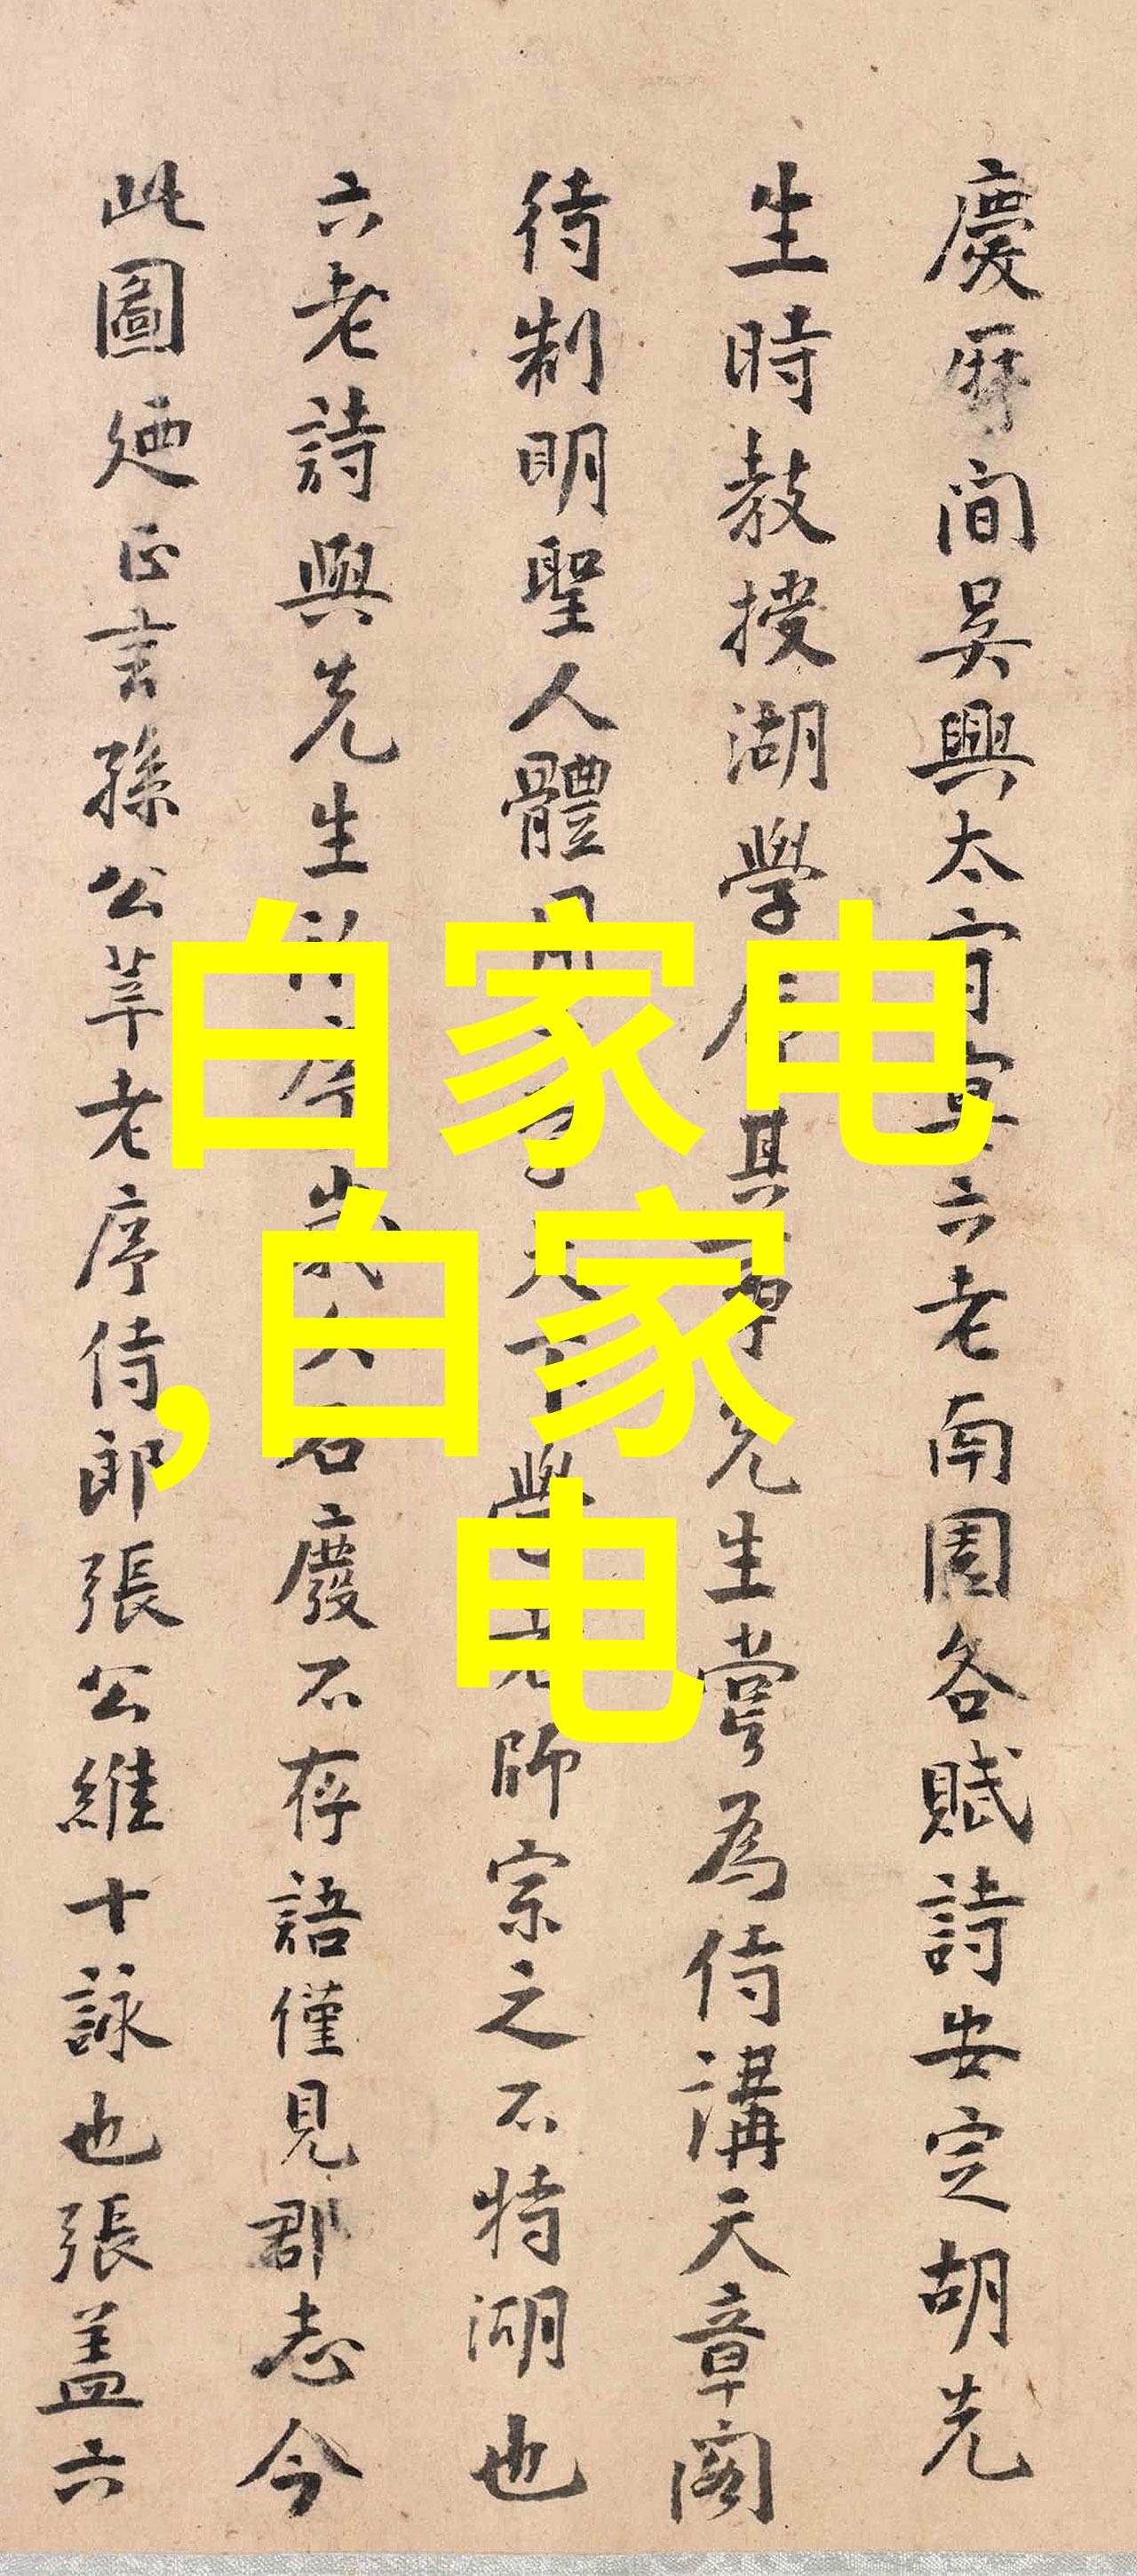 慶曆間吳興太守宴六老南園各賦詩安定胡先
生時教授湖學為其序先生嘗為侍講天章閣
待制明聖人體用天下學先師宗之不特湖也
六老詩與先生序名廢不存語僅見郡志今
此圖廼正言孫公莘老序侍郎張公維十詠也張盖六
白家电
,白家
电